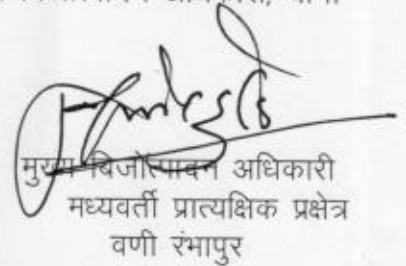 मुख्य बिजोत्पादन अधिकारी
मध्यवर्ती प्रात्यक्षिक प्रक्षेत्र
वणी रंभापुर